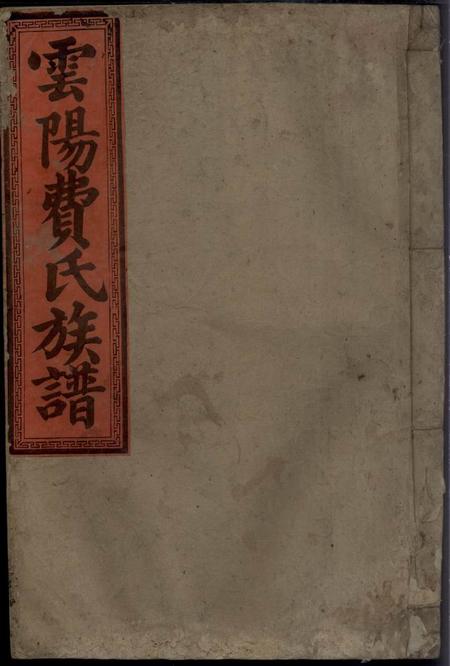 雲陽費氏族譜